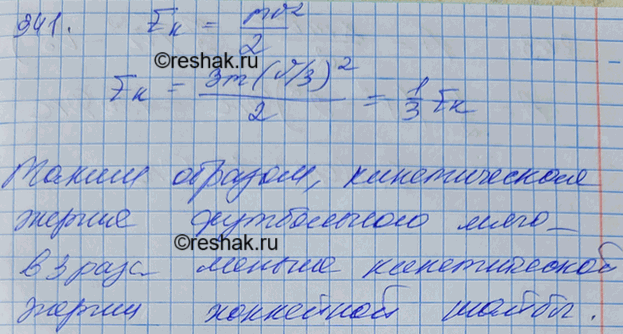 941. Eк = mv²/2
©reshak.ru
Eк = 3m(v/3)²/2 = 1/3 Eк
Таким образом, кинетическая
энергия футбольного мяча
©reshak.ru
в 3 раза меньше кинетической
энергии хоккейной шайбы.
©reshak.ru